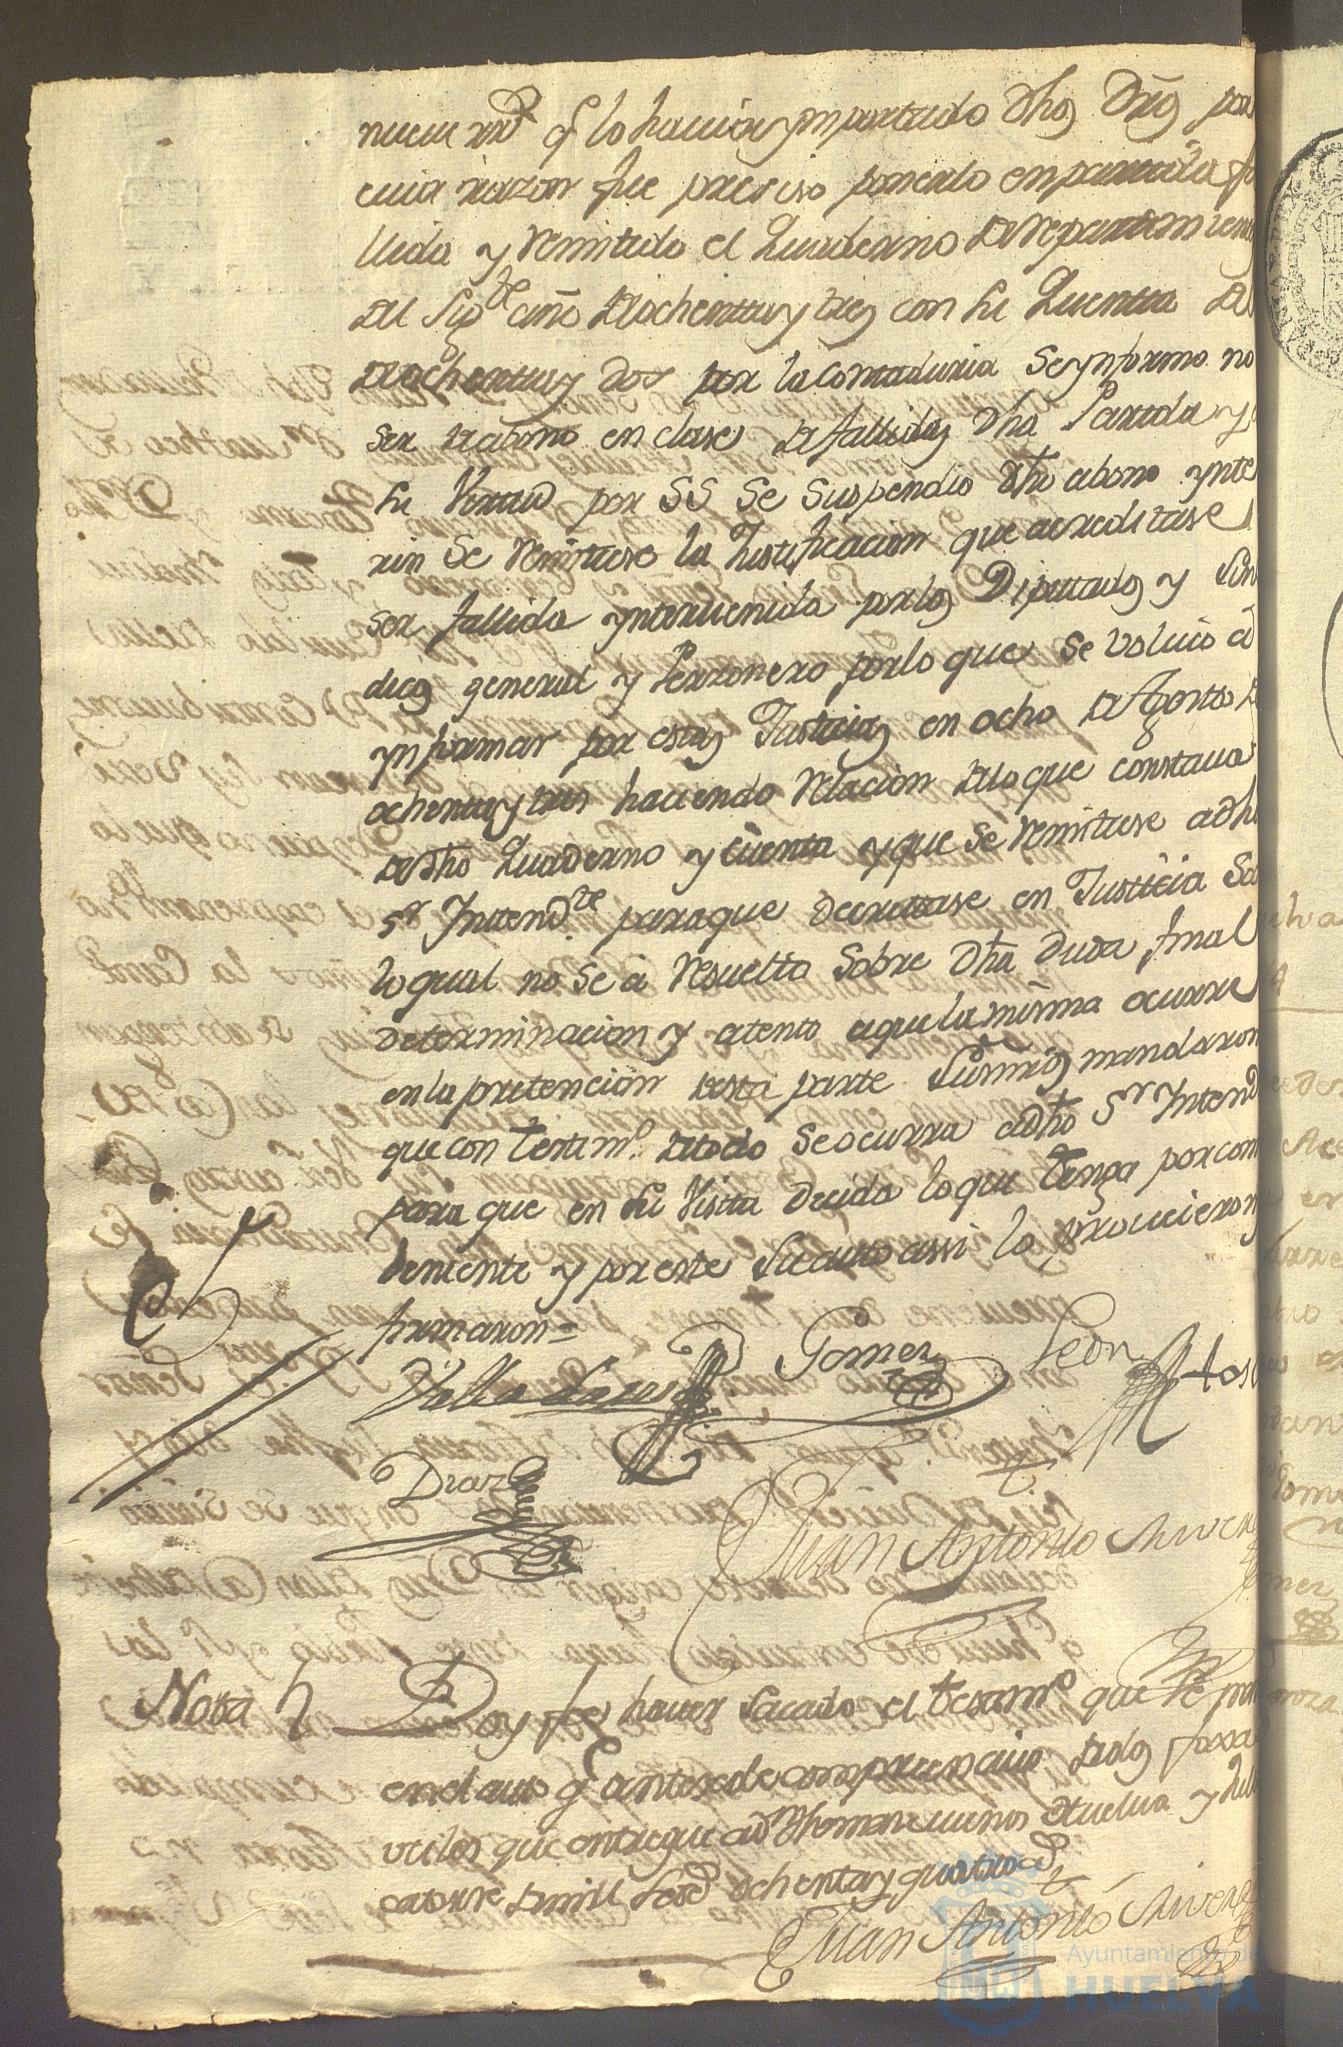 nueve q. lo havia ymportado Dhos Dros por
cuia razon fue preciso ponerlo en partida fa
llida y remitido el Quaderno de repartimiento
del año de ochenta y tres con su Quenta de
de ochenta y dos por la contaduria se ynformo no
ser de abono en clase de fallidas Dha Partida y
su Virtud por SS se suspendio Dho abono ynte
rin se remitiese la Justificacion que acreditase
ser fallida yntervenida por los Diputados y Sin
dicos general y Perzonero por lo que se volvio a
ynformar por estas Justicias en ocho de Agosto de
ochenta y tres haciendo relacion de lo que constava
de Dho Quaderno y cuenta y que se remitiese a dho
Sr Intendte para que decretase en Justicia So
lo qual no se a resuelto sobre Dha duda final
determinacion y atento a que la misma ocurre
en la pretencion desta parte Sus mrds mandaron
que con testimo de todo se ocurra a dho Sr Intend
para que en su Vista decida lo que tenga por con
beniente y por este su auto assi lo proveieron
firmaron =
Gomez Leon
Diaz
Juan Antonio
Nota Doy fee haver sacado el testimo que se pre
en el auto q. antesede comprencivo de dos foxas
utiles que entregue a Huelva y
catorse de mill Setes ochenta y quatro
Juan Antonio
Ayuntamiento de
HUELVA